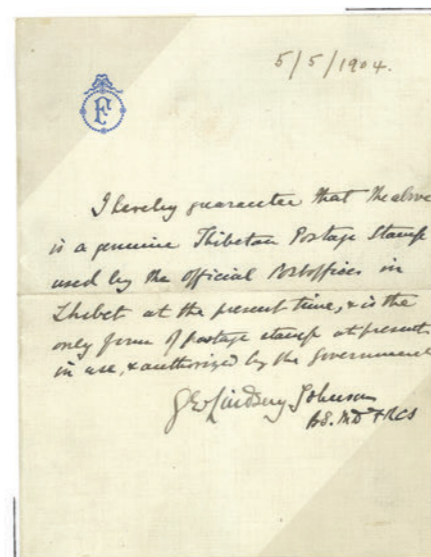 5/5/1904.
F
I hereby guarantee that the above
is a genuine Thibetan Postage Stamp
used by the Official Postoffices in
Thibet at the present time, & is the
only form of postage stamp at present
in use, & authorized by the Government
G Lindsay Johnson
MD FRCS